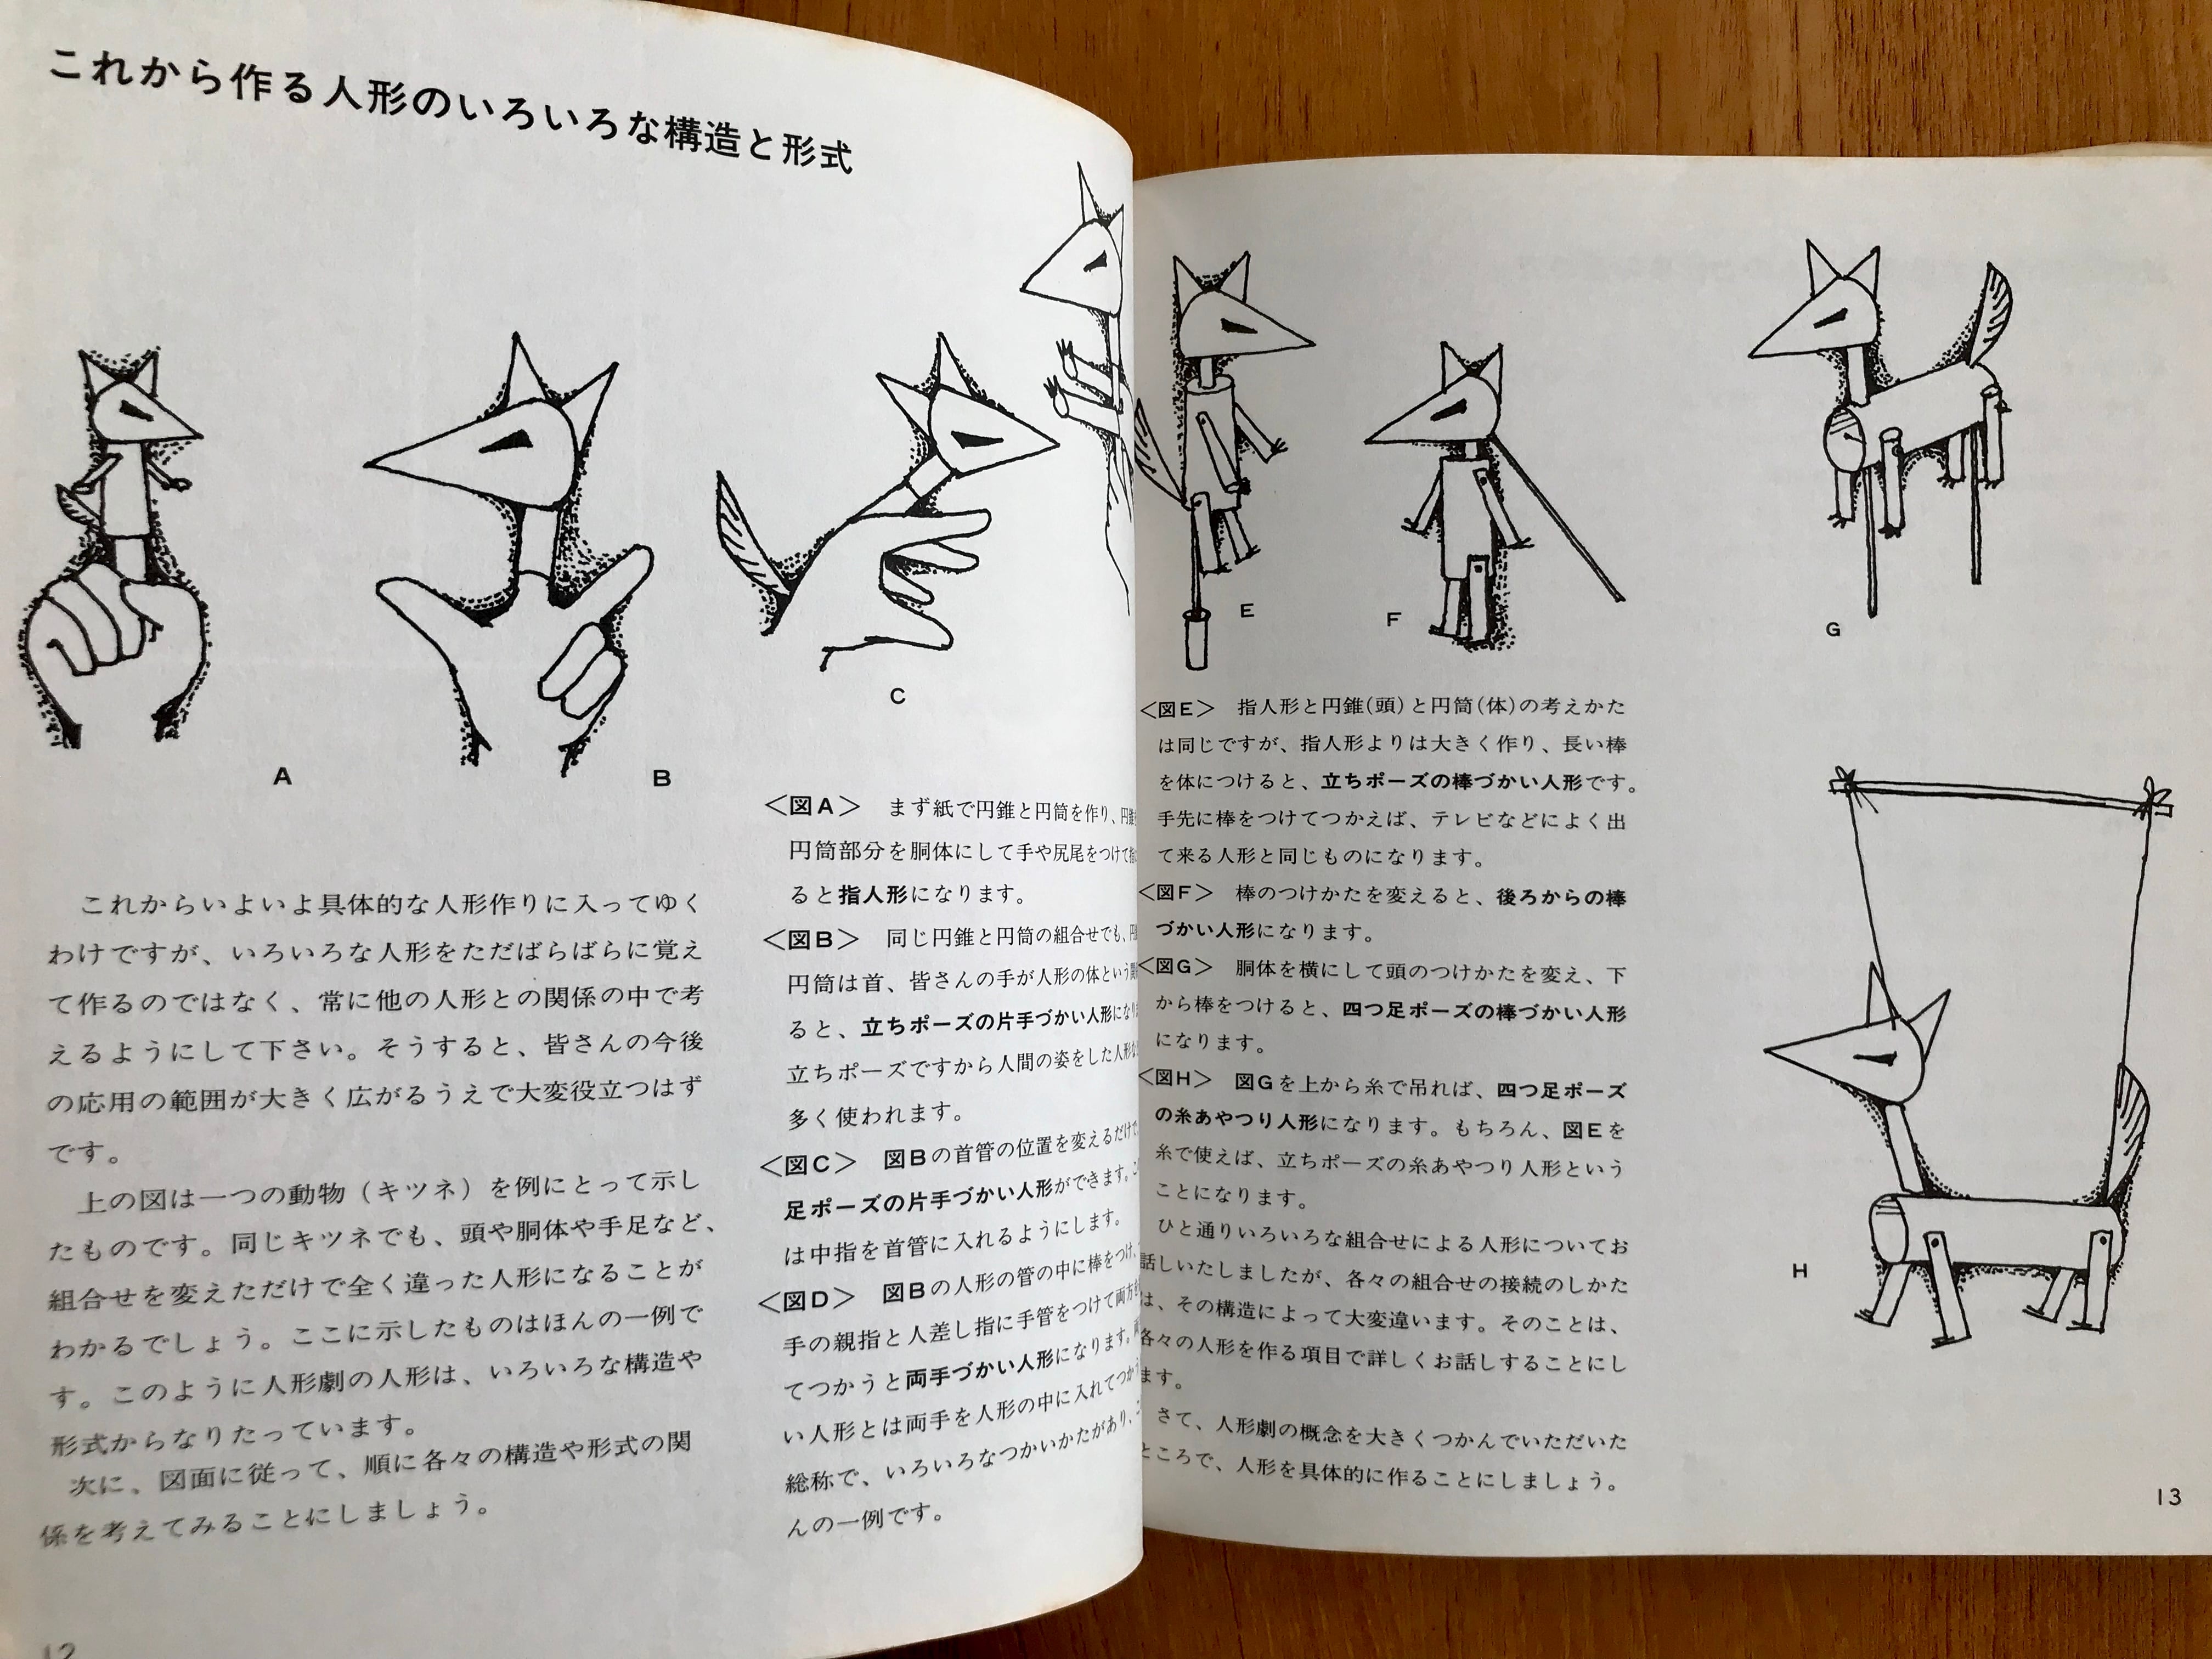 これから作る人形のいろいろな構造と形式
A
B
C
これからいよいよ具体的な人形作りに入ってゆく
わけですが、いろいろな人形をただばらばらに覚え
て作るのではなく、常に他の人形との関係の中で考
えるようにして下さい。そうすると、皆さんの今後
の応用の範囲が大きく広がるうえで大変役立つはず
です。
上の図は一つの動物（キツネ）を例にとって示し
たものです。同じキツネでも、頭や胴体や手足など、
組合せを変えただけで全く違った人形になることが
わかるでしょう。ここに示したものはほんの一例で
す。このように人形劇の人形は、いろいろな構造や
形式からなりたっています。
次に、図面に従って、順に各々の構造や形式の関
係を考えてみることにしましょう。
＜図A＞　まず紙で円錐と円筒を作り、
円筒部分を胴体にして手や尻尾をつけて
ると指人形になります。
＜図B＞　同じ円錐と円筒の組合せでも、
円筒は首、皆さんの手が人形の体という
ると、立ちポーズの片手づかい人形にな
立ちポーズですから人間の姿をした人形
多く使われます。
＜図C＞　図Bの首管の位置を変えるだけで
足ポーズの片手づかい人形ができます。
は中指を首管に入れるようにします。
＜図D＞　図Bの人形の管の中に棒をつけ、
手の親指と人差し指に手管をつけて両方
てつかうと両手づかい人形になります。
い人形とは両手を人形の中に入れてつか
総称で、いろいろなつかいかたがあり、
んの一例です。
12
E
F
G
＜図E＞　指人形と円錐(頭)と円筒(体)の考えかた
は同じですが、指人形よりは大きく作り、長い棒
を体につけると、立ちポーズの棒づかい人形です。
手先に棒をつけてつかえば、テレビなどによく出
て来る人形と同じものになります。
＜図F＞　棒のつけかたを変えると、後ろからの棒
づかい人形になります。
＜図G＞　胴体を横にして頭のつけかたを変え、下
から棒をつけると、四つ足ポーズの棒づかい人形
になります。
＜図H＞　図Gを上から糸で吊れば、四つ足ポーズ
の糸あやつり人形になります。もちろん、図Eを
糸で使えば、立ちポーズの糸あやつり人形という
ことになります。
ひと通りいろいろな組合せによる人形についてお
話しいたしましたが、各々の組合せの接続のしかた
は、その構造によって大変違います。そのことは、
各々の人形を作る項目で詳しくお話しすることにし
ます。
さて、人形劇の概念を大きくつかんでいただいた
ところで、人形を具体的に作ることにしましょう。
H
13